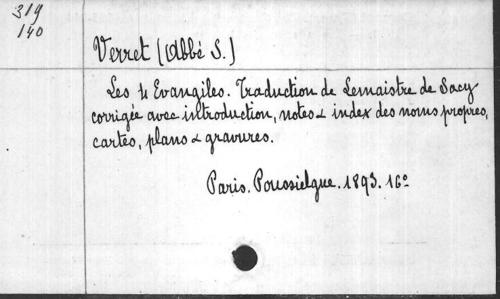 319
140
Verret (Abbé S.)
Les 4 Evangiles. Traduction de Lemaistre de Sacy
corrigée avec introduction, notes & index des noms propres,
cartes, plans & gravures.
Paris. Poussielgue. 1893. 16º